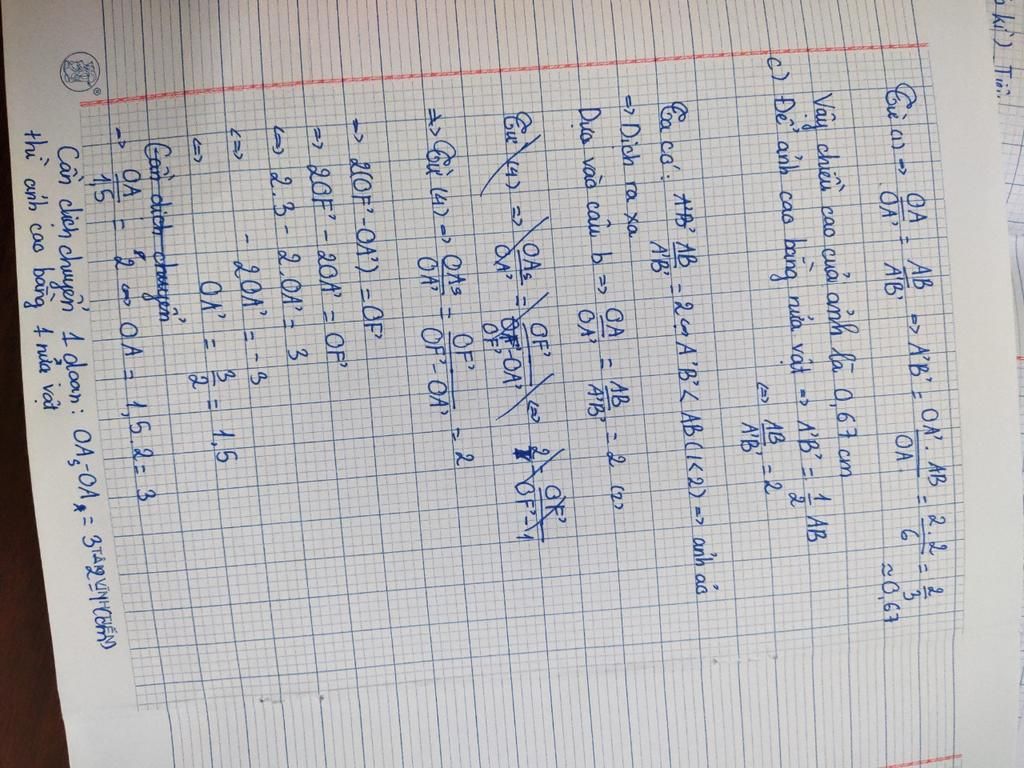 Từ (1) => OA/OA' = AB/A'B' => A'B' = OA'.AB/OA = 2.2/6 = 2/3 ≈ 0,67
Vậy chiều cao của ảnh là 0,67 cm
c) Để ảnh cao bằng nửa vật => A'B' = 1/2 AB
<=> AB/A'B' = 2
Ta có: AB/A'B' = 2 <=> A'B' < AB (1 < 2) => ảnh ảo
=> Dịch ra xa
Dựa vào câu b => OA/OA' = AB/A'B' = 2
Từ (4) => OAs/OA' = OF'/OF'-OA' <=> 2 = OF'/OF'-1
=> Từ (4) => OAs/OA' = OF'/OF'-OA' = 2
=> 2(OF'-OA') = OF'
=> 2OF' - 2OA' = OF'
<=> 2.3 - 2.OA' = 3
<=> - 2OA' = -3
<=> OA' = 3/2 = 1,5
Cần dịch chuyển
=> OA/1,5 = 2 <=> OA = 1,5.2 = 3
Cần dịch chuyển 1 đoạn: OAs - OA = 3
thì ảnh cao bằng 1 nửa vật